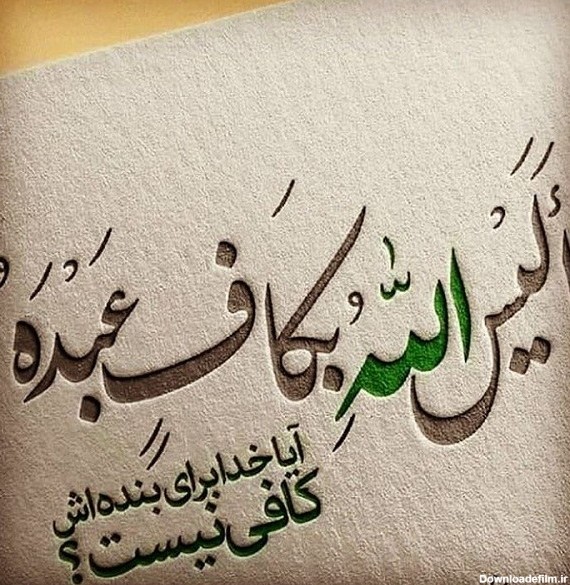 أَلَيْسَ اللّٰهُ بِكَافٍ عَبْدَهُ
آیا خدا برای بنده‌اش
کافی نیست؟
Downloadefilm.ir